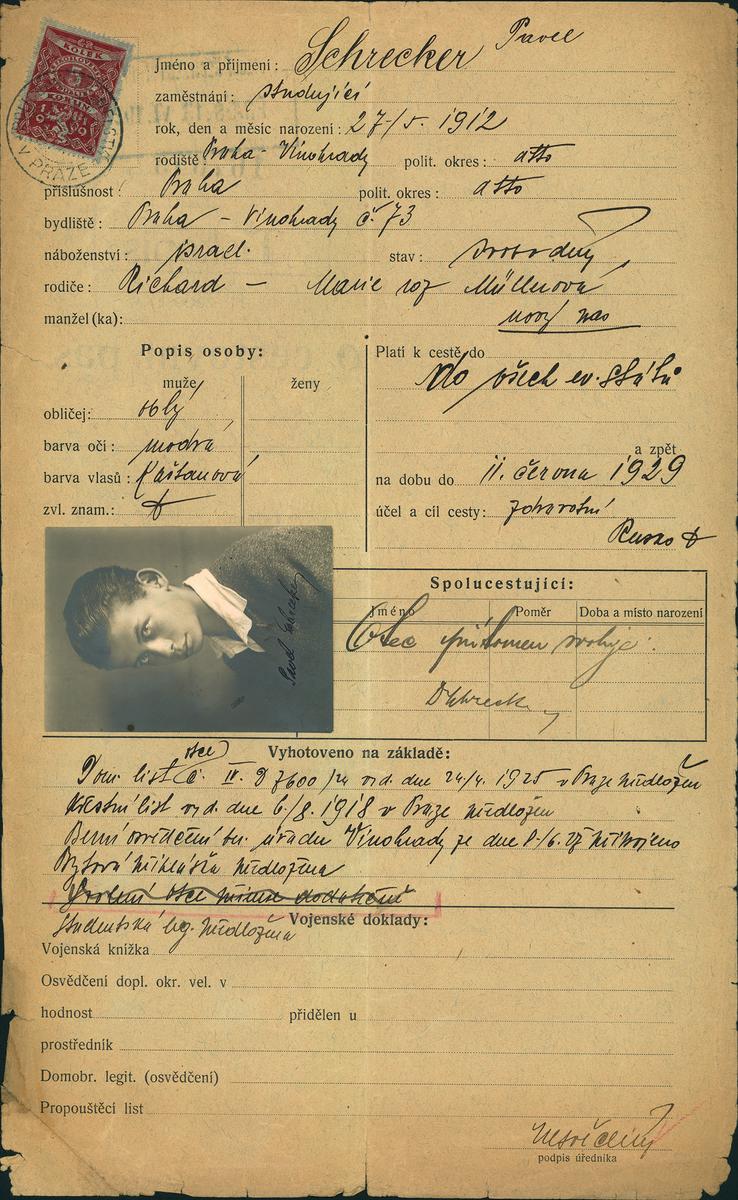 KOLEK
5
V PRAZE
Jméno a příjmení: Schrecker Pavel
zaměstnání: studující
rok, den a měsíc narození: 27/5. 1912
rodiště Praha - Vinohrady polit. okres: atto
příslušnost: Praha polit. okres: atto
bydliště: Praha - Vinohrady č. 73
náboženství: israel. stav: svobodný
rodiče: Richard - Marie roz Müllerová
manžel(ka): nový pas
Popis osoby:
muže ženy
obličej: oblý
barva očí: modrá
barva vlasů: kaštanová
zvl. znam.:
Platí k cestě do
do všech ev. států
a zpět
na dobu do 11. června 1929
účel a cíl cesty: zdravotní
Rusko
Pavel Schrecker
Spolucestující:
Jméno Poměr Doba a místo narození
Otec přítomen svoluje.
Vyhotoveno na základě:
otce
Dom. list č. IV. 7600/24 vyd. dne 24/4. 1925 v Praze
Křestní list vyd. dne 6/8. 1918 v Praze
Berní osvědčení ber. úřadu Vinohrady ze dne
Svolení otce
Studentská leg.
Vojenské doklady:
Vojenská knížka
Osvědčení dopl. okr. vel. v
hodnost přidělen u
prostředník
Domobr. legit. (osvědčení)
Propouštěcí list
podpis úředníka